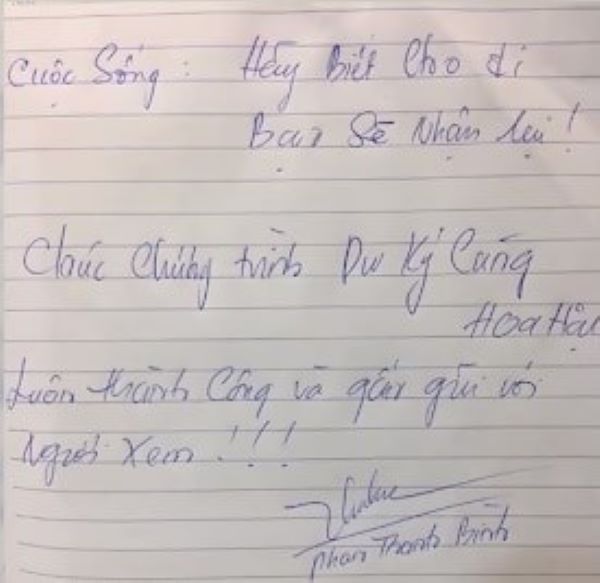 Cuộc Sống : Hãy Biết Cho đi
Bạn Sẽ Nhận lại !
Chúc Chương trình Du Ký Cùng
Hoa Hậu
Luôn thành Công và gần gũi với
Người Xem !!!
Phan Thanh Bình